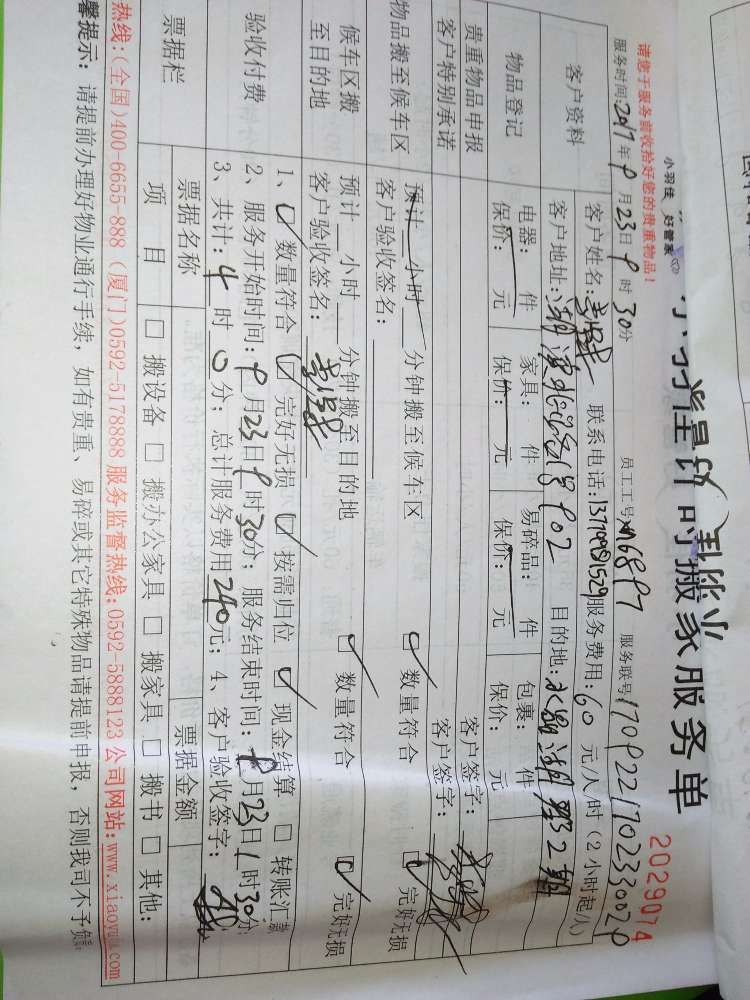 小羽佳 好管家
请您于服务前收拾好您的贵重物品！
时搬家服务单
2029074
服务时间:2017年9月23日9时30分 员工工号 服务联号1709221702330029
客户资料
客户姓名: 联系电话:13799821529 服务费用:60元/人/时(2小时起/人)
客户地址: 902 目的地:水晶湖郡2期
物品登记
电器: 件 家具: 件 易碎品: 件 包裹: 件
保价: 元 保价: 元 保价: 元 保价: 元
贵重物品申报
客户特别承诺
客户签字:
客户签字:
物品搬至候车区
预计 小时 分钟搬至候车区 ☑数量符合 ☑完好无损
客户验收签名:
候车区搬至目的地
预计 小时 分钟搬至目的地 ☑数量符合 ☑完好无损
客户验收签名:
验收付费
1、☑数量符合 ☑完好无损 ☑按需归位 ☑现金结算 □转账汇
2、服务开始时间:9月23日9时30分; 服务结束时间:9月23日1时30分
3、共计:4时0分; 总计服务费用240元; 4、客户验收签字:
票据栏
票据名称 票据金额
项目 □搬设备 □搬办公家具 □搬家具 □搬书 □其他:
热线:(全国)400-6655-888 (厦门)0592-5178888 服务监督热线:0592-5888123 公司网站:www.xiaoyujia.com
馨提示: 请提前办理好物业通行手续，如有贵重、易碎或其它特殊物品请提前申报，否则我司不予